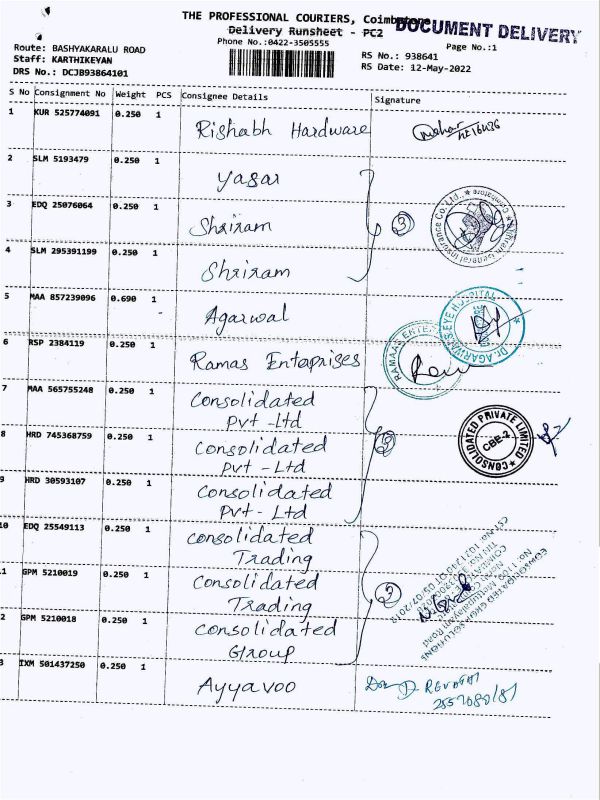 THE PROFESSIONAL COURIERS, Coimbatore
DOCUMENT DELIVERY
Delivery Runsheet - PC2
Phone No.:0422-3505555
Page No.:1
Route: BASHYAKARALU ROAD
Staff: KARTHIKEYAN
DRS No.: DCJB93864101
RS No.: 938641
RS Date: 12-May-2022
S No Consignment No Weight PCS Consignee Details Signature
1 KUR 525774091 0.250 1 Rishabh Hardware
2 SLM 5193479 0.250 1 Yasar
3 EDQ 25076064 0.250 1 Shriram
4 SLM 295391199 0.250 1 Shriram
3
General Insurance Co. Ltd.
5 MAA 857239096 0.690 1 Agarwal
Dr. AGARWAL'S EYE HOSPITAL
6 RSP 2384119 0.250 1 Ramas Enterprises
RAMAAS ENTER
7 MAA 565755248 0.250 1 Consolidated
Pvt - Ltd
8 HRD 745368759 0.250 1 Consolidated
Pvt - Ltd
9 HRD 30593107 0.250 1 Consolidated
Pvt - Ltd
3
CONSOLIDATED PRIVATE LIMITED
CBE-2
10 EDQ 25549113 0.250 1 Consolidated
Trading
1 GPM 5210019 0.250 1 Consolidated
Trading
2 GPM 5210018 0.250 1 Consolidated
Group
3 IXM 501437250 0.250 1 Ayyavoo
REVATHI